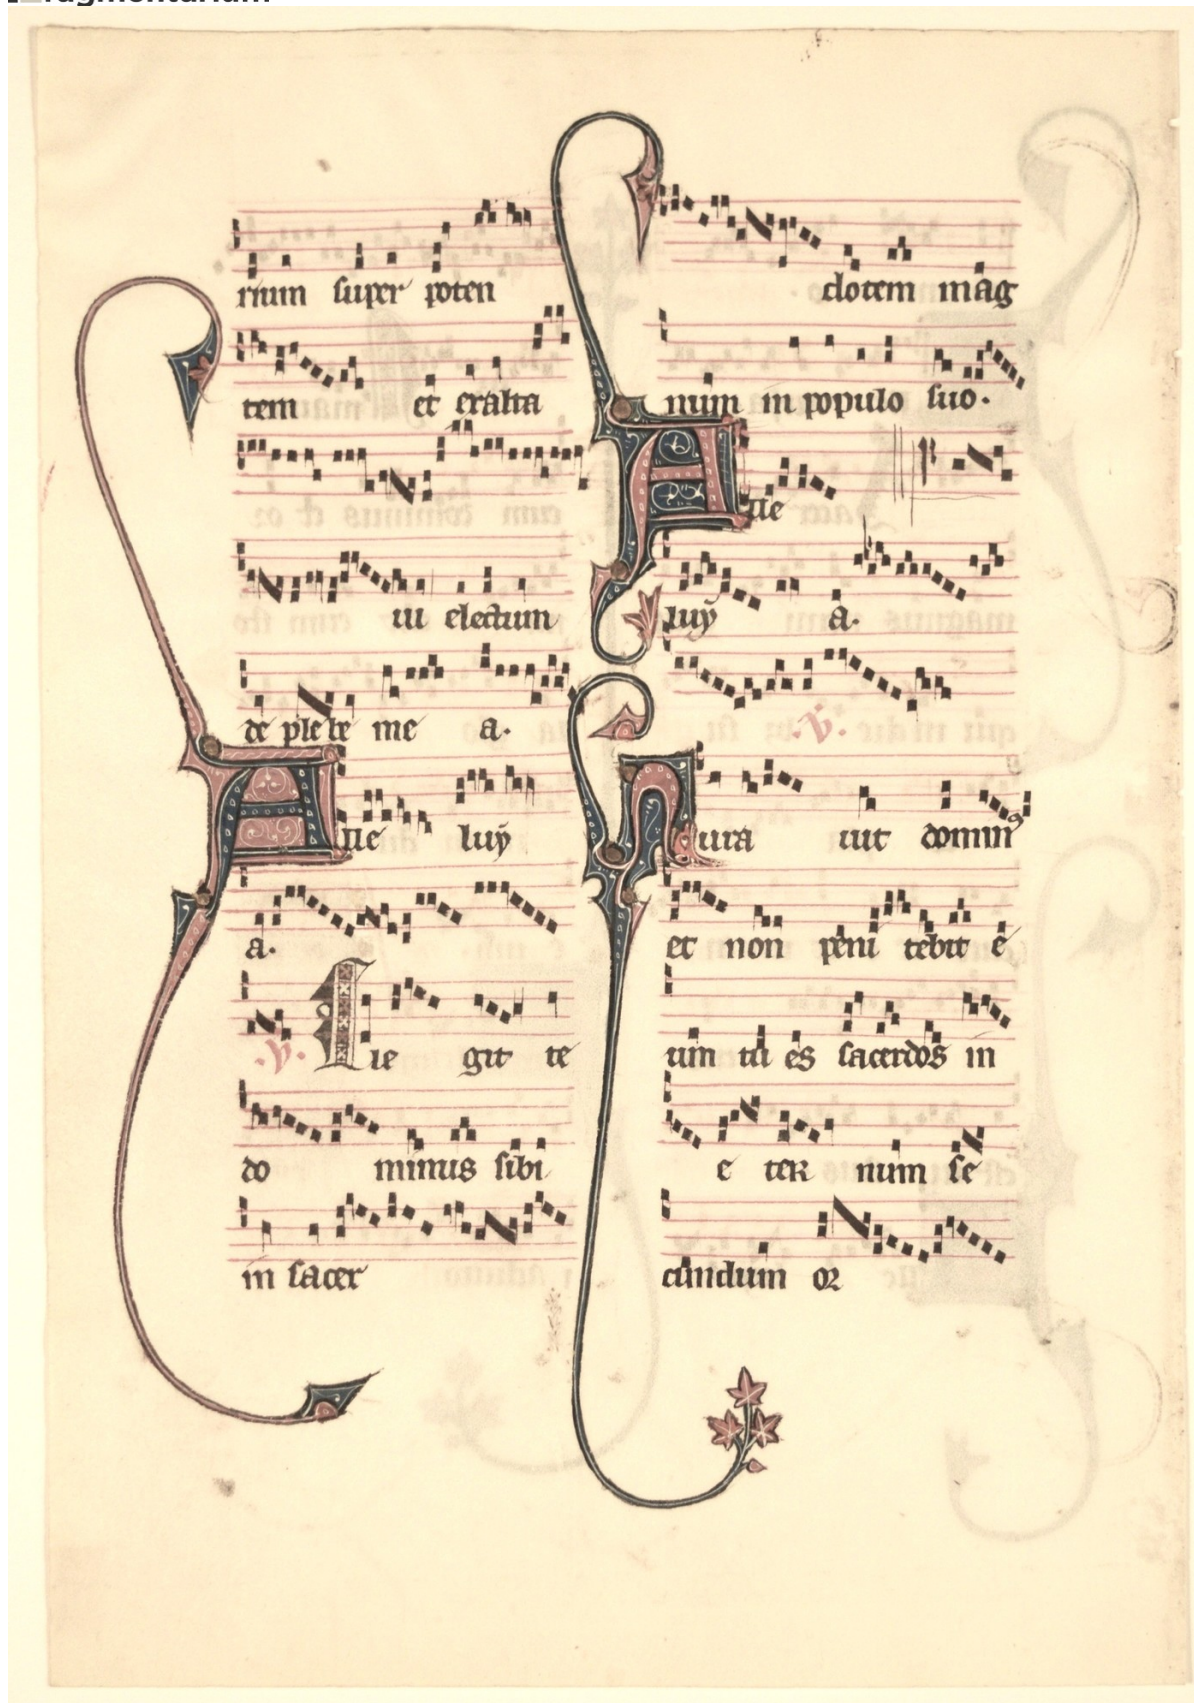 rium super poten
tem et exalta
ui electum
de plebe me a.
Alle luy
a.
.v. Ele git te
do minus sibi
in sacer
dotem mag
num in populo suo.
Alle
luy a.
.v.
Iura uit domin⁹
et non peni tebit e
um tu es sacerdos in
e ter num se
cundum or